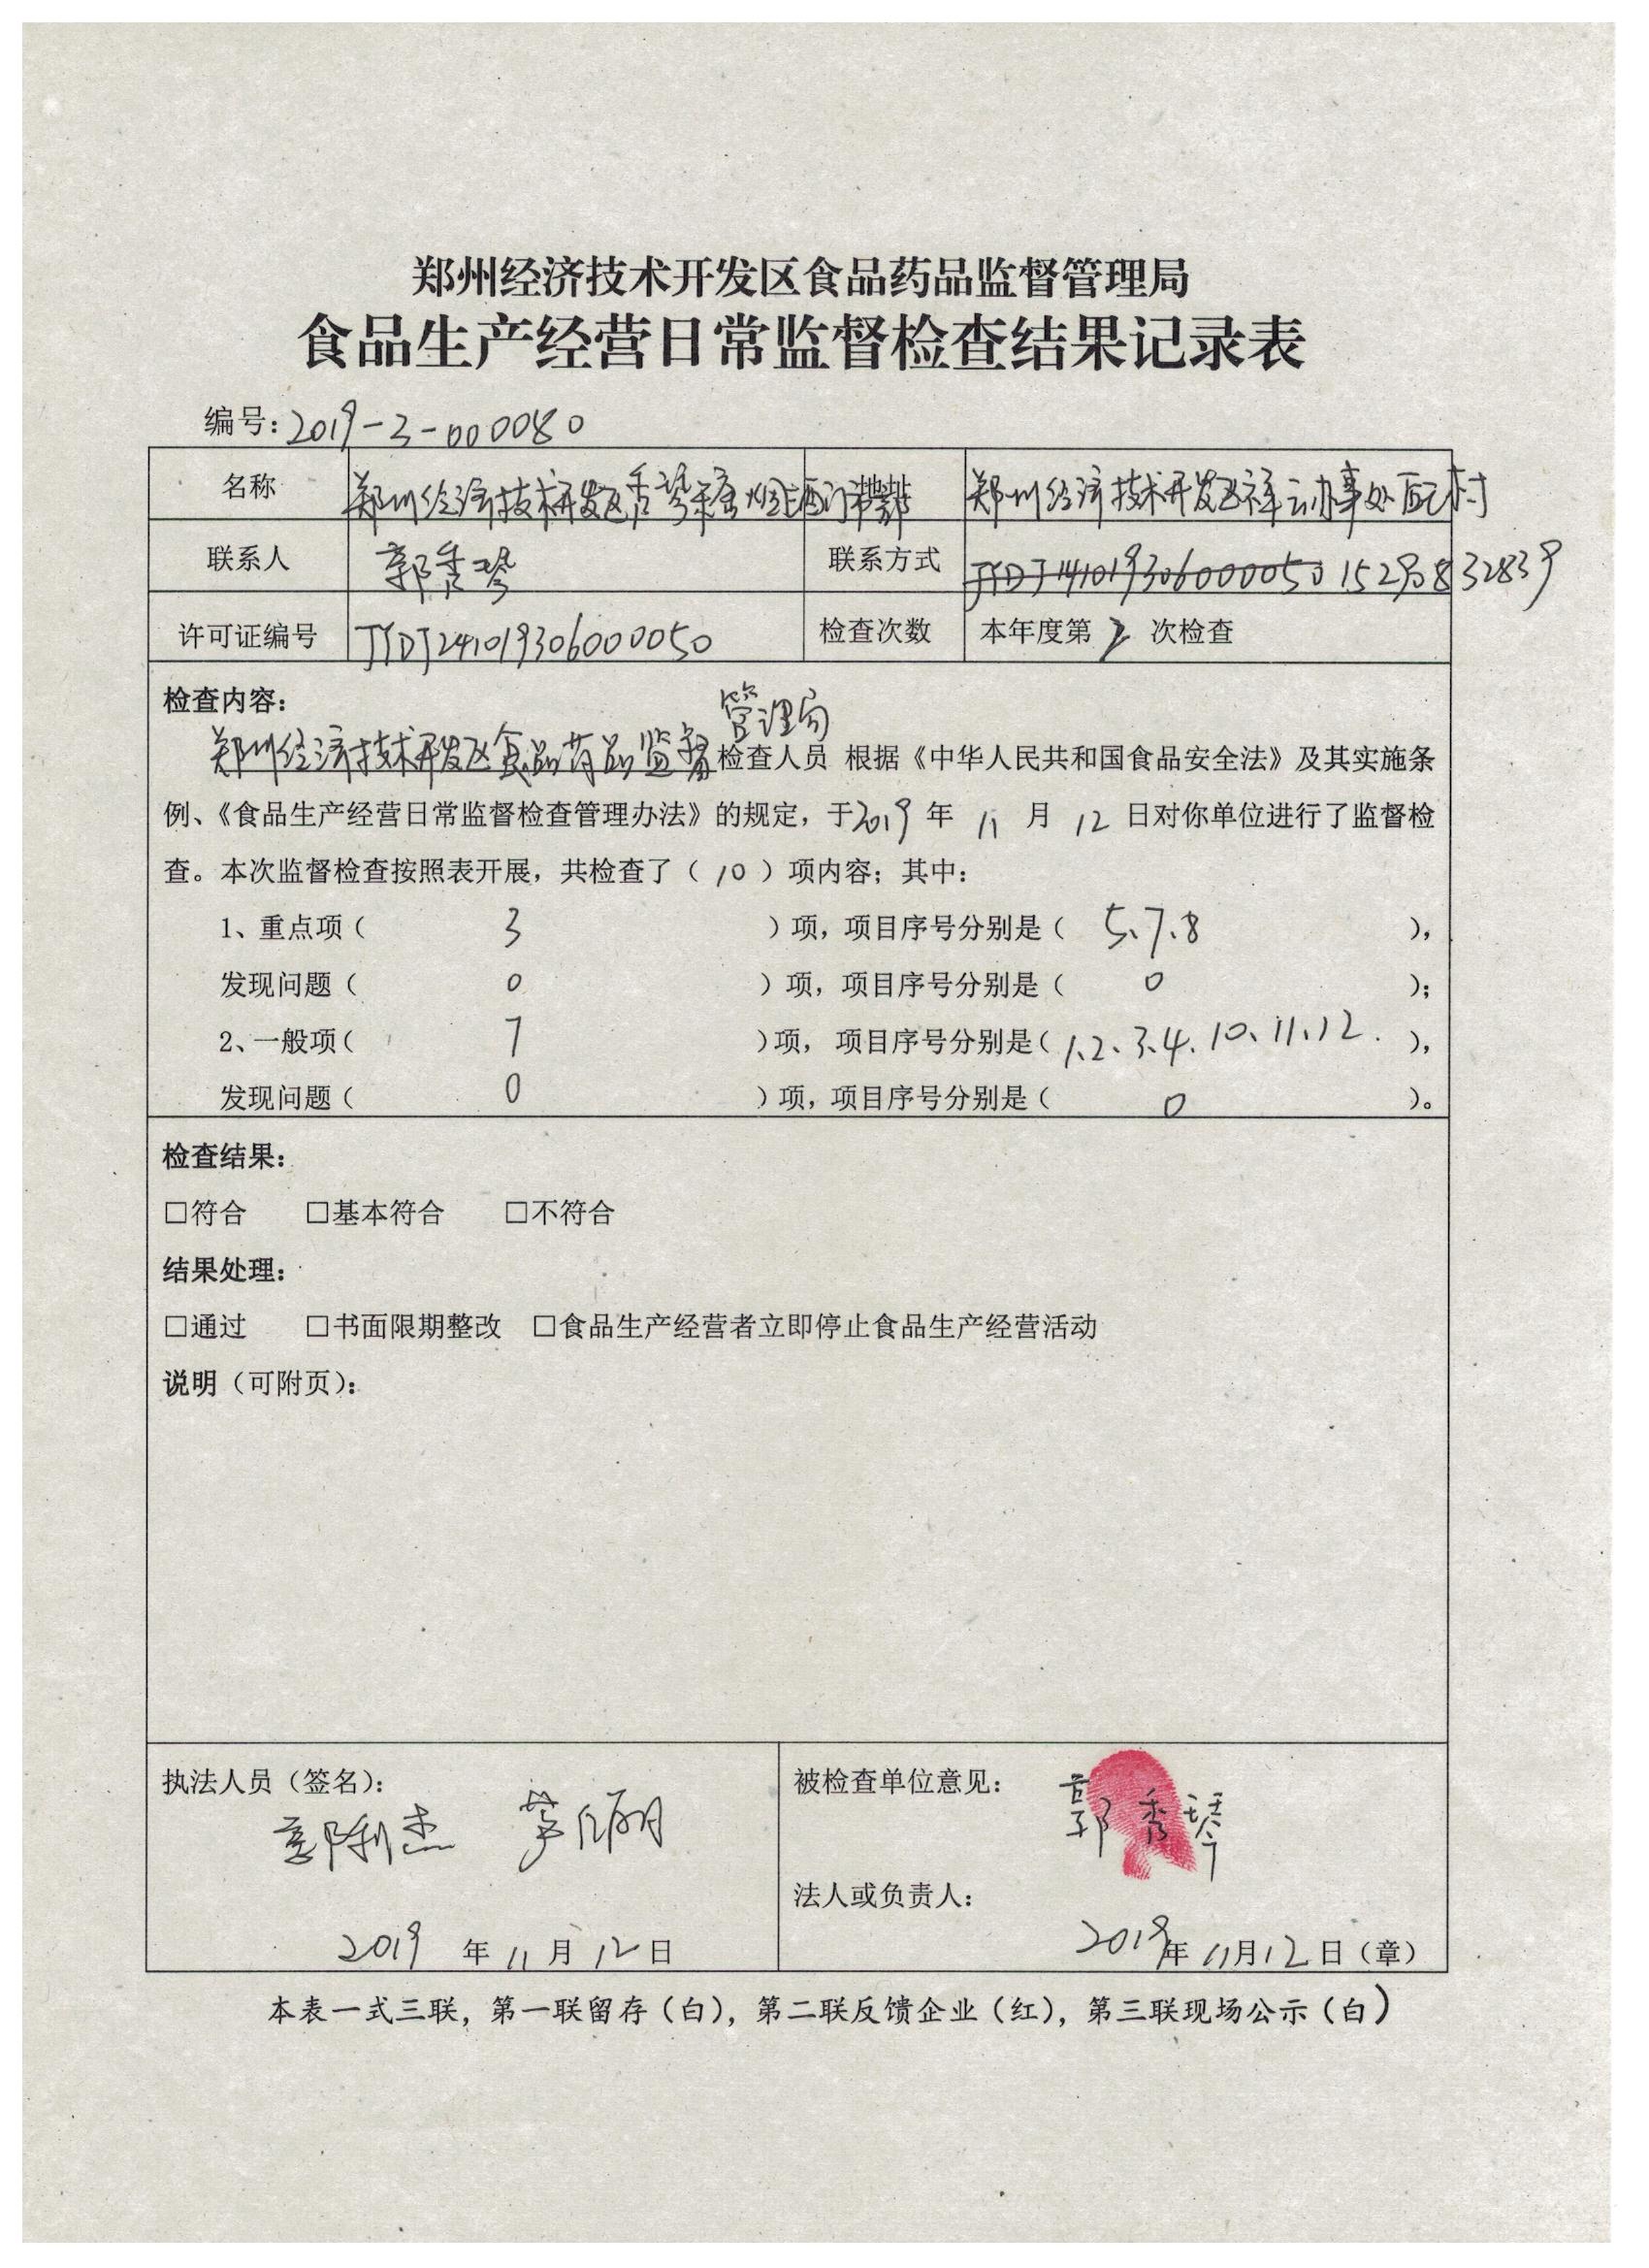 郑州经济技术开发区食品药品监督管理局
食品生产经营日常监督检查结果记录表
编号：2019-3-000080
名称 郑州经济技术开发区秀琴糖烟酒门市部 地址 郑州经济技术开发区祥云办事处 村
联系人 郭秀琴 联系方式 JYDJ141019306000050
许可证编号 JYDJ241019306000050 检查次数 本年度第 2 次检查
检查内容：
管理局
郑州经济技术开发区食品药品监督检查人员 根据《中华人民共和国食品安全法》及其实施条
例、《食品生产经营日常监督检查管理办法》的规定，于2019 年 11 月 12 日对你单位进行了监督检
查。本次监督检查按照表开展，共检查了（ 10 ）项内容；其中：
1、重点项（ 3 ）项，项目序号分别是（ 5、7、8 ），
发现问题（ 0 ）项，项目序号分别是（ 0 ）；
2、一般项（ 7 ）项， 项目序号分别是（ 1、2、3、4、10、11、12. ），
发现问题（ 0 ）项，项目序号分别是（ 0 ）。
检查结果：
□符合 □基本符合 □不符合
结果处理：
□通过 □书面限期整改 □食品生产经营者立即停止食品生产经营活动
说明（可附页）：
执法人员（签名）： 被检查单位意见：
郭利杰 郭秀琴
法人或负责人：
2019 年 11 月 12 日 2019 年 11 月 12 日（章）
本表一式三联，第一联留存（白），第二联反馈企业（红），第三联现场公示（白）